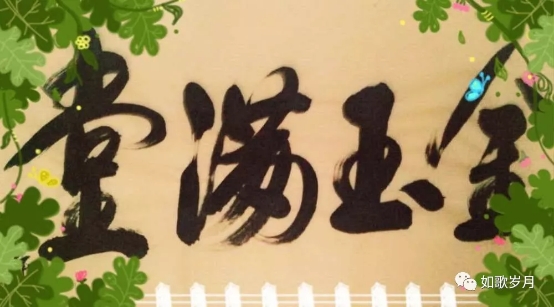 金玉满堂
如歌岁月